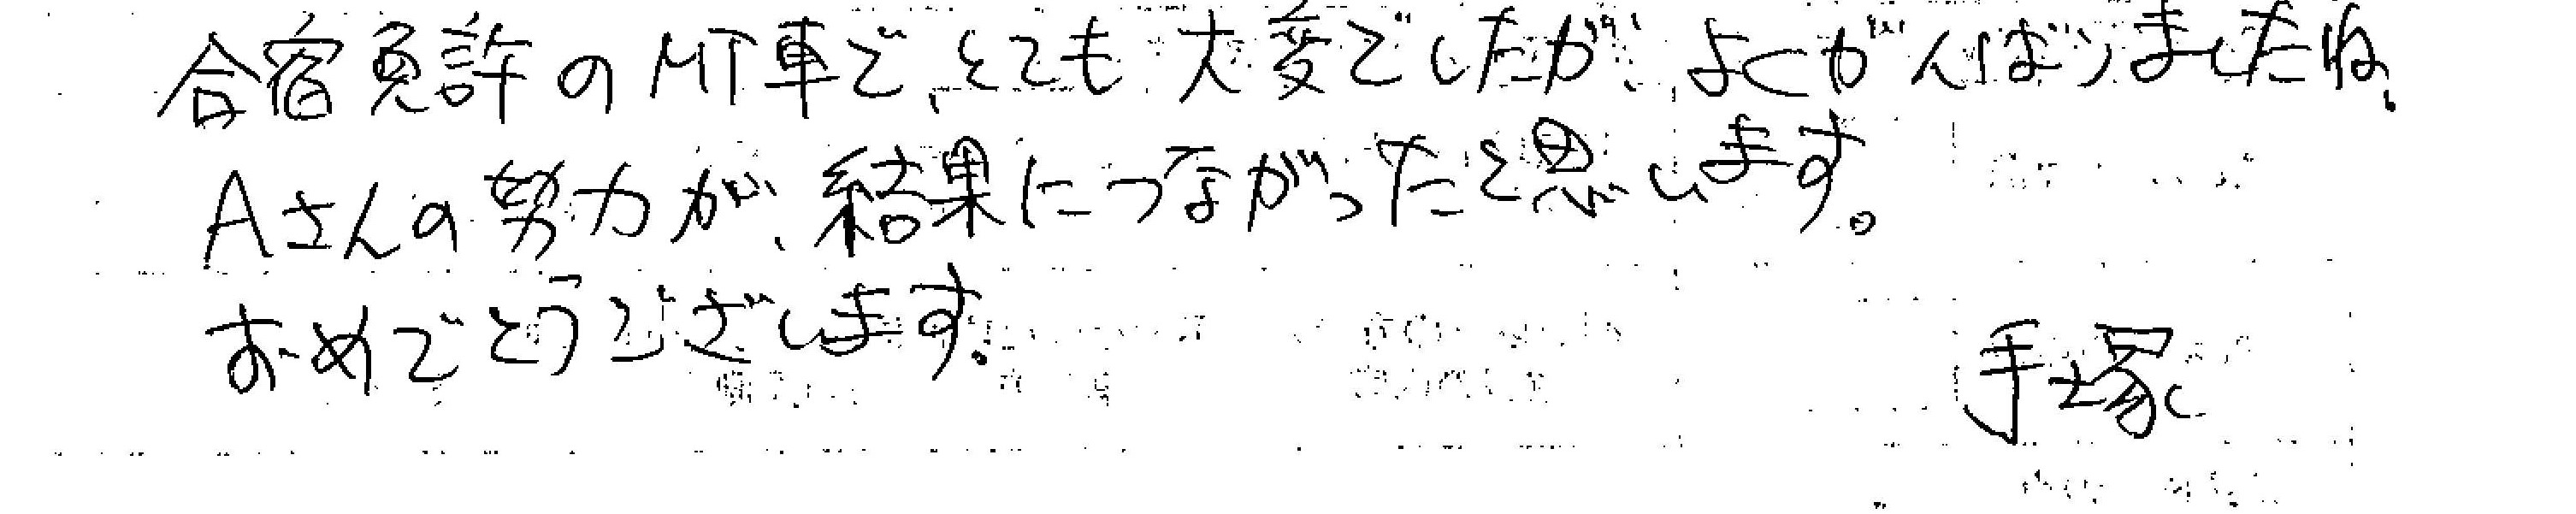 合宿免許のMT車で、とても大変でしたが、よくがんばりましたね。
Aさんの努力が、結果につながったと思います。
おめでとうございます。
手塚